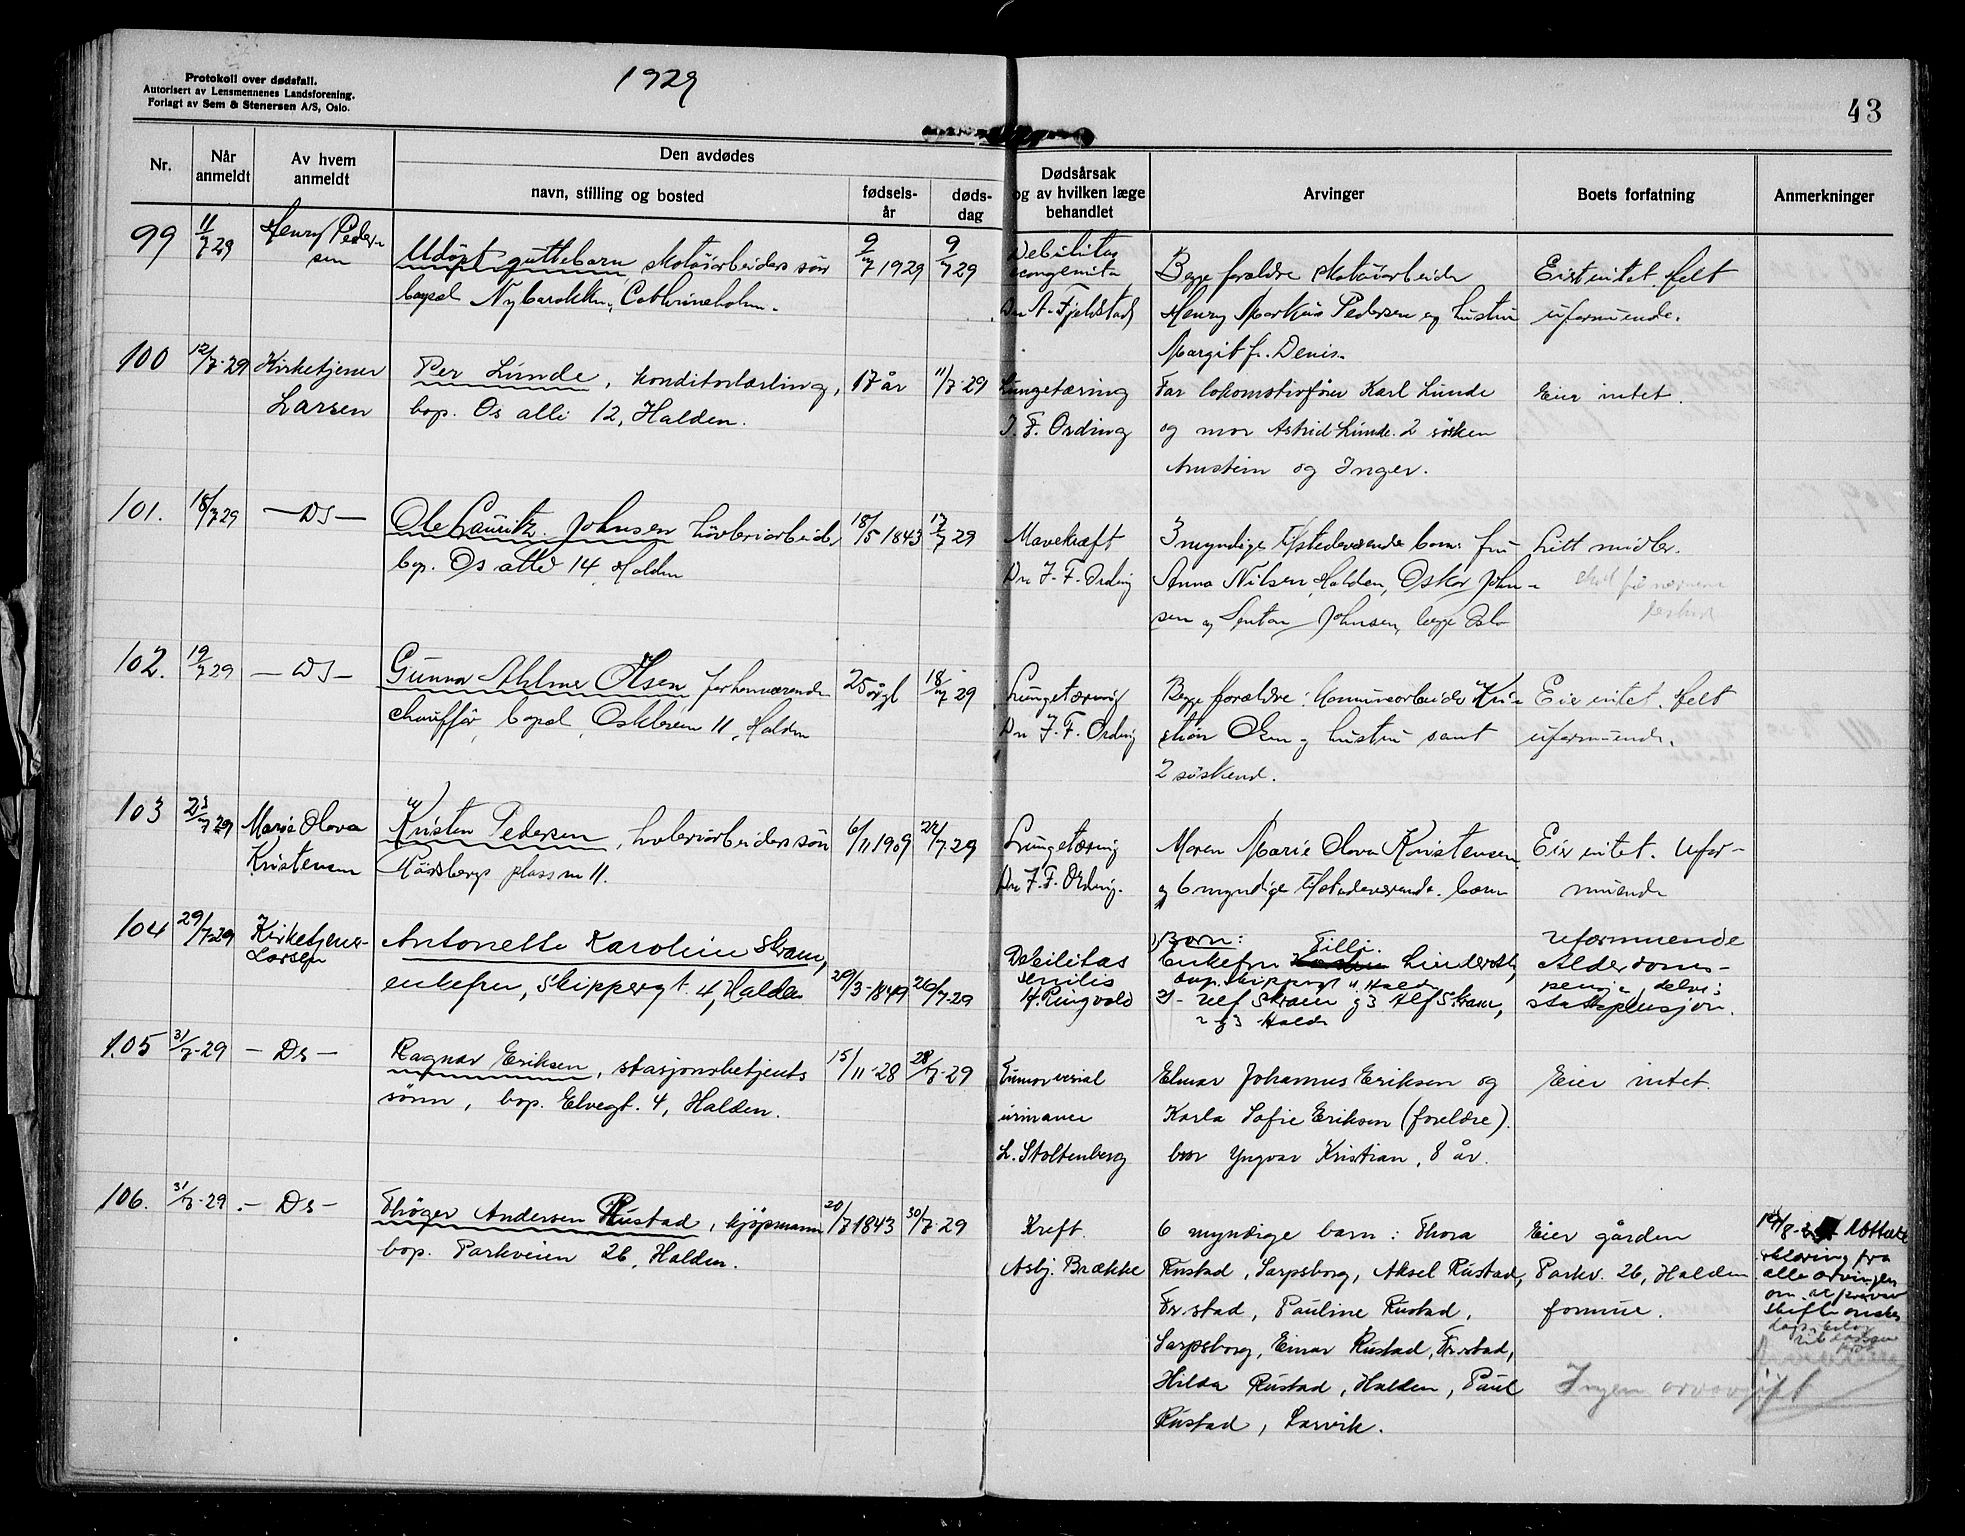 Protokoll over dødsfall.
Autorisert av Lensmennenes Landsforening.
Forlagt av Sem & Stenersen A/S, Oslo.
1929
43
Nr.
Når anmeldt
Av hvem anmeldt
Den avdødes
navn, stilling og bosted
fødsels-år
døds-dag
Dødsårsak og av hvilken læge behandlet
Arvinger
Boets forfatning
Anmerkninger
99 11/7 29 Henry Peder-
sen
Udøpt guttebarn, skotøiarbeiders sön
bopæl Nybarakken, Cathrineholm.
9/7 1929 9/7 29
Debilitas
congenita
Dr. A. Fjeldstad
Begge forældre skotøiarbeider
Henry Markus Pedersen og hustru
Margit f. Denis.
Eier intet. Helt
uformuende.
100 12/7-29 Kirketjener
Larsen
Per Lunde, konditorlærling,
bop. Os alle 12, Halden.
17 år 11/7-29
Lungetæring
J. F. Ording
Far lokomotivfører Karl Lunde
og mor Astrid Lunde. 2 søsken
Arnstein og Inger.
Eier intet.
101. 18/7 29 — Ds —
Ole Lauritz Johnsen høvleriarbeider
bop. Os alle 14 Halden
18/5 1843 17/7 29
Mavekræft
Dr. J. F. Ording
3 myndige tilstedeværende barn: fru
Anna Nilsen, Halden, Oskar John-
sen og Johnsen, begge Oslo
Litt midler.
102. 19/7 29 — Ds —
Gunnar Ahlmer Olsen, forhenværende
chauffør, bopæl, Oskleiven 11, Halden
25 år gl 18/7 29
Lungetæring
Dr. J. F. Ording
Begge forældre: Kommunearbeider Kri-
stian Olsen og hustru samt
2 søskend.
Eier intet. Helt
uformuende.
103 23/7 29 Marie Olova
Kristensen
Kristen Pedersen, høvleriarbeiders sön
plass nr 11.
6/11 1909 22/7 29
Lungetæring
Dr. J. F. Ording.
Moren Marie Olova Kristensen
og 6 myndige tilstedeværende barn
Eier intet. Ufor-
muende
104 29/7-29 Kirketjener
Larsen
Antonette Karoline Skram,
enkefru, Skippergt. 4, Halden
29/3-1849 26/7-29
Debilitas
senilis
H. Ringvold
1) Barn: Tilli.
Enkefru
bop. Skippergt 4 Halden
2) - Ulf Skram og 3 Alf Skram,
2 og 3 Halden
Uformuende
Alderdoms-
penge, delvis
statspensjon.
105 31/7-29 — Ds —
Ragnar Eriksen, stasjonsbetjents
sönn, bop. Elvegt. 4, Halden.
15/11-28 28/7-29
Tumor
L. Stoltenberg
Elmar Johannes Eriksen og
Karla Sofie Eriksen (foreldre).
bror Yngvar Kristian, 8 år.
Eier intet.
106. 31/7-29 — Ds —
Thöger Andersen Rustad, kjöpmann
bop. Parkveien 26, Halden.
20/7 1843 30/7-29
Kreft.
Asbj. Brække
6 myndige barn: Thora
Rustad, Sarpsborg, Aksel Rustad,
Fr.stad, Pauline Rustad,
Sarpsborg, Einar Rustad, Fr.stad,
Hilda Rustad, Halden, Paul
Rustad, Larvik.
Eier gården
Parkv. 26, Halden
formue.
Ingen arveavgift
erklæring fra
alle arvinger
om at privat
skifte önskes